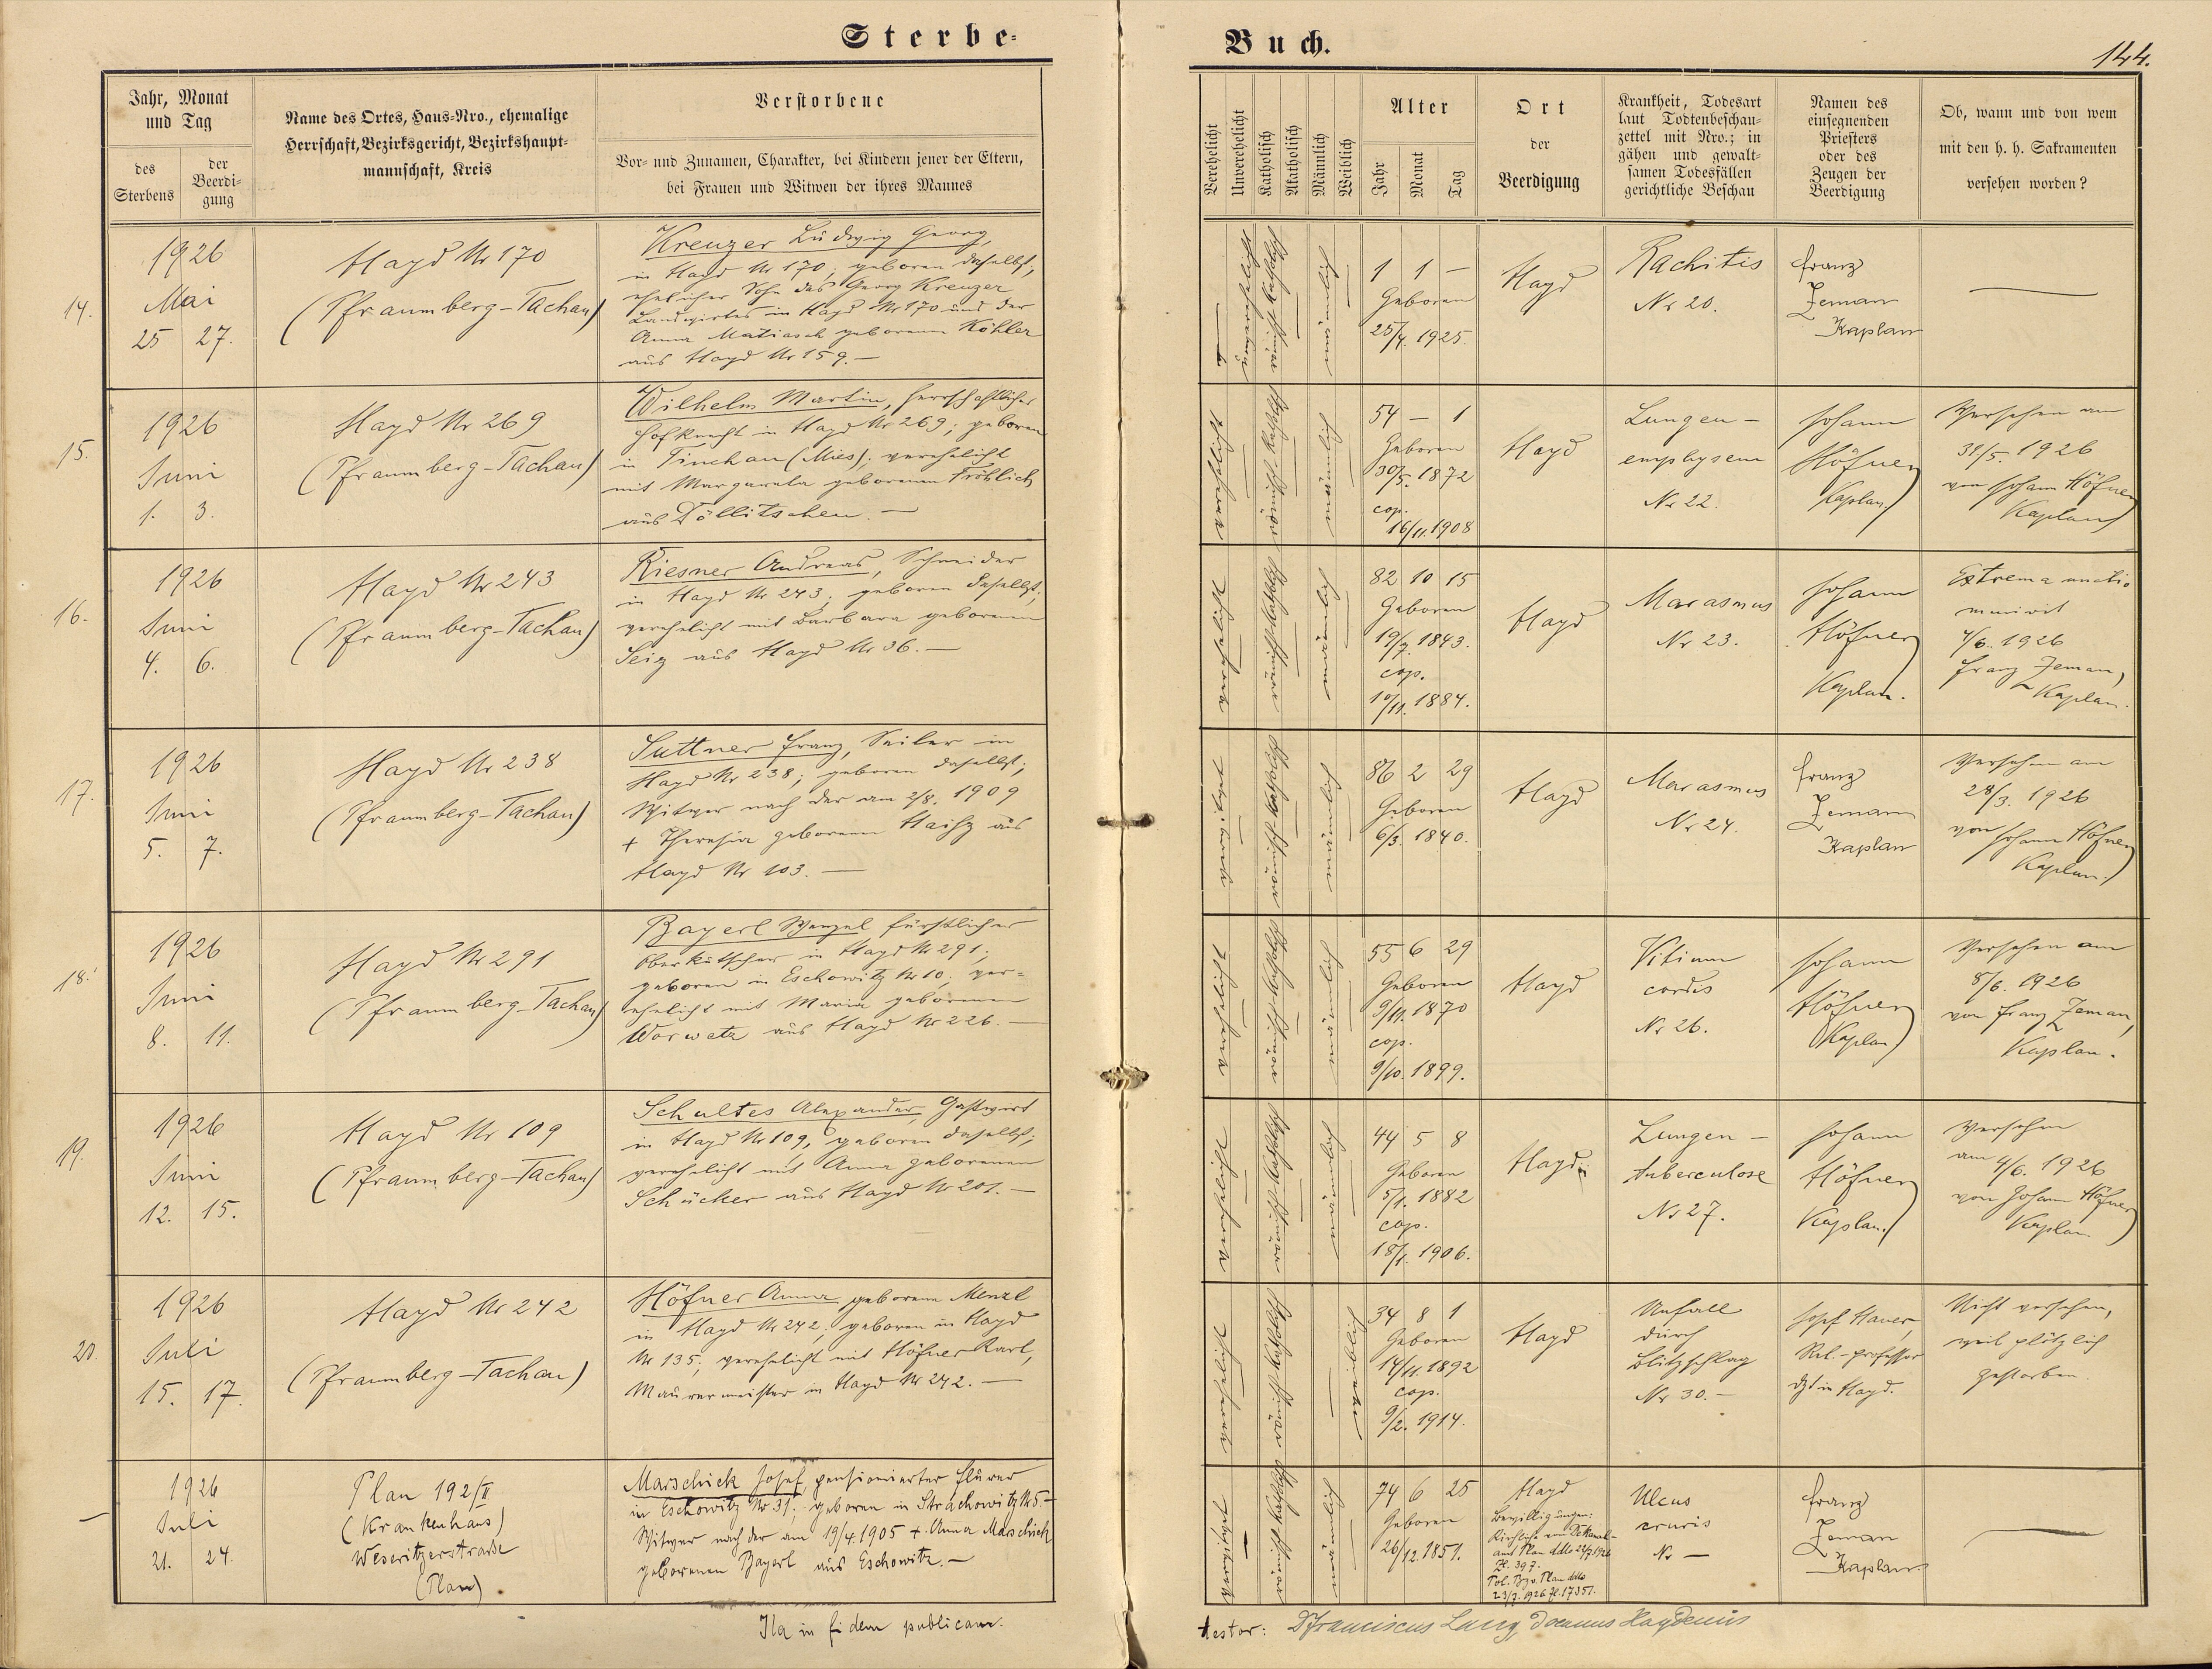 Sterbe-
Jahr, Monat
und Tag
des
Sterbens
der
Beerdi-
gung
Name des Ortes, Haus-Nro., ehemalige
Herrschaft, Bezirksgericht, Bezirkshaupt-
mannschaft, Kreis
Verstorbene
Vor- und Zunamen, Charakter, bei Kindern jener der Eltern,
bei Frauen und Witwen der ihres Mannes
14.
1926
Mai
25 27.
Hayd Nr 170
(Pfraumberg-Tachau)
Kreuzer Ludwig Georg,
in Hayd Nr 170; geboren daselbst,
ehelicher Sohn des Georg Kreuzer
Landwirtes in Hayd Nr 170 und der
Anna Matiasch geborenen Köhler
aus Hayd Nr 159. —
15.
1926
Juni
1. 3.
Hayd Nr 269
(Pfraumberg-Tachau)
Wilhelm Martin, herrschaftlicher
Hofknecht in Hayd Nr 269; geboren
in Tinchau (Mies); verehelicht
mit Margareta geborenen Fröhlich
aus Döllitschen. —
16.
1926
Juni
4. 6.
Hayd Nr 243
(Pfraumberg-Tachau)
Riesner Andreas, Schneider
in Hayd Nr 243; geboren daselbst;
verehelicht mit Barbara geborenen
Seiz aus Hayd Nr 36. —
17.
1926
Juni
5. 7.
Hayd Nr 238
(Pfraumberg-Tachau)
Suttner Franz, Seiler in
Hayd Nr 238; geboren daselbst;
Witwer nach der am 2/8. 1909
+ Theresia geborenen
Hayd Nr 103. —
18.
1926
Juni
8. 11.
Hayd Nr 291
(Pfraumberg-Tachau)
Bayerl Wenzel fürstlicher
Oberkutscher in Hayd Nr 291;
geboren in Eschowitz Nr 10; ver-
ehelicht mit Maria geborenen
Worwata aus Hayd Nr 226. —
19.
1926
Juni
12. 15.
Hayd Nr 109
(Pfraumberg-Tachau)
Schultes Alexander, Gastwirt
in Hayd Nr 109, geboren daselbst;
verehelicht mit Anna geborenen
Schücker aus Hayd Nr 201. —
20.
1926
Juli
15. 17.
Hayd Nr 242
(Pfraumberg-Tachau)
Höfner Anna geborene Menzl
in Hayd Nr 242, geboren in Hayd
Nr 135; verehelicht mit Höfner Karl,
Maurermeister in Hayd Nr 242. —
—
1926
Juli
21. 24.
Plan 192/II
(Krankenhaus)
Weseritzerstraße
(Plan)
Marschick Josef, pensionierter Flurer
in Eschowitz Nr 31; geboren in Strachowitz Nr 5. —
Witwer nach der am 19/4. 1905 +. Anna Marschick
geborenen Bayerl aus Eschowitz. —
Ita in fidem publicam.
Buch.
144.
Verehelicht
Unverehelicht
Katholisch
Akatholisch
Männlich
Weiblich
Alter
Jahr
Monat
Tag
Ort
der
Beerdigung
Krankheit, Todesart
laut Todtenbeschau-
zettel mit Nro.; in
gähen und gewalt-
samen Todesfällen
gerichtliche Beschau
Namen des
einsegnenden
Priesters
oder des
Zeugen der
Beerdigung
Ob, wann und von wem
mit den h. h. Sakramenten
versehen worden?
unverehelicht
römisch katholisch
männlich
1 1 —
Geboren
25/4. 1925.
Hayd
Rachitis
Nr 20.
Franz
Zeman
Kaplan
—
verehelicht
römisch katholisch
männlich
54 — 1
Geboren
30/5. 1872
cop.
16/11. 1908
Hayd
Lungen-
emphysem
Nr 22.
Johann
Höfner
Kaplan
Versehen am
31/5. 1926
von Johann Höfner
Kaplan
verehelicht
römisch katholisch
männlich
82 10 15
Geboren
19/7. 1843.
cop.
10/11. 1884.
Hayd
Marasmus
Nr 23.
Johann
Höfner
Kaplan.
Extrema unctio
munivit
4/6. 1926
Franz Zeman,
Kaplan.
verwitwet
römisch katholisch
männlich
86 2 29
Geboren
6/3. 1840.
Hayd
Marasmus
Nr 24.
Franz
Zeman
Kaplan
Versehen am
28/3. 1926
von Johann Höfner
Kaplan.
verehelicht
römisch katholisch
männlich
55 6 29
Geboren
9/11. 1870
cop.
9/10. 1899.
Hayd
Vitium
cordis
Nr 26.
Johann
Höfner
Kaplan
Versehen am
8/6. 1926
von Franz Zeman,
Kaplan.
verehelicht
römisch katholisch
männlich
44 5 8
Geboren
5/1. 1882
cop.
18/1. 1906.
Hayd
Lungen-
tuberculose
Nr 27.
Johann
Höfner
Kaplan.
Versehen
am 4/6. 1926
von Johann Höfner
Kaplan
verehelicht
römisch katholisch
weiblich
34 8 1
Geboren
14/11. 1892
cop.
9/2. 1914.
Hayd
Unfall
durch
Blitzschlag
Nr 30. —
Josef Hauer,
Rel.-Professor
dzt in Hayd.
Nicht versehen,
weil plötzlich
gestorben.
verwitwet
römisch katholisch
männlich
74 6 25
Geboren
26/12. 1851.
Hayd
Bewilligungen:
Kirchliche vom Dekanal-
amt Plan ddto 22/7 1926
Zl. 397.
Pol. Bzv. Plan ddto
23/7. 1926 Zl. 17351.
Ulcus
cruris
Nr —
Franz
Zeman
Kaplan.
—
testor: P Franciscus Lang Decanus Haydensis